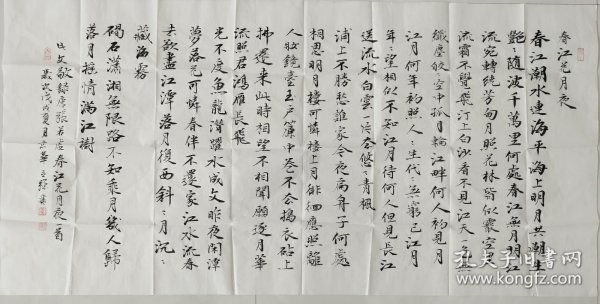 春江花月夜
春江潮水連海平海上明月共潮生
艷〻隨波千萬里何處春江無月明江
流宛轉繞芳甸月照花林皆似霰空裏
流霜不覺飛汀上白沙看不見江天一色無
纖塵皎〻空中孤月輪江畔何人初見月
江月何年初照人〻生代〻無窮已江月
年〻望相似不知江月待何人但見長江
送流水白雲一片去悠〻青楓
浦上不勝愁誰家今夜扁舟子何處
相思明月樓可憐樓上月徘徊應照離
人妝鏡臺玉户簾中卷不去搗衣砧上
拂還來此時相望不相聞願逐月華
流照君鴻雁長飛
光不度魚龍潛躍水成文昨夜閑潭
夢落花可憐春半不還家江水流春
去欲盡江潭落月復西斜〻月沉〻
藏海霧
碣石瀟湘無限路不知乘月幾人歸
落月摇情滿江樹
張若虚春江花月夜一首
歲次戊戌夏月
孔夫子旧书网